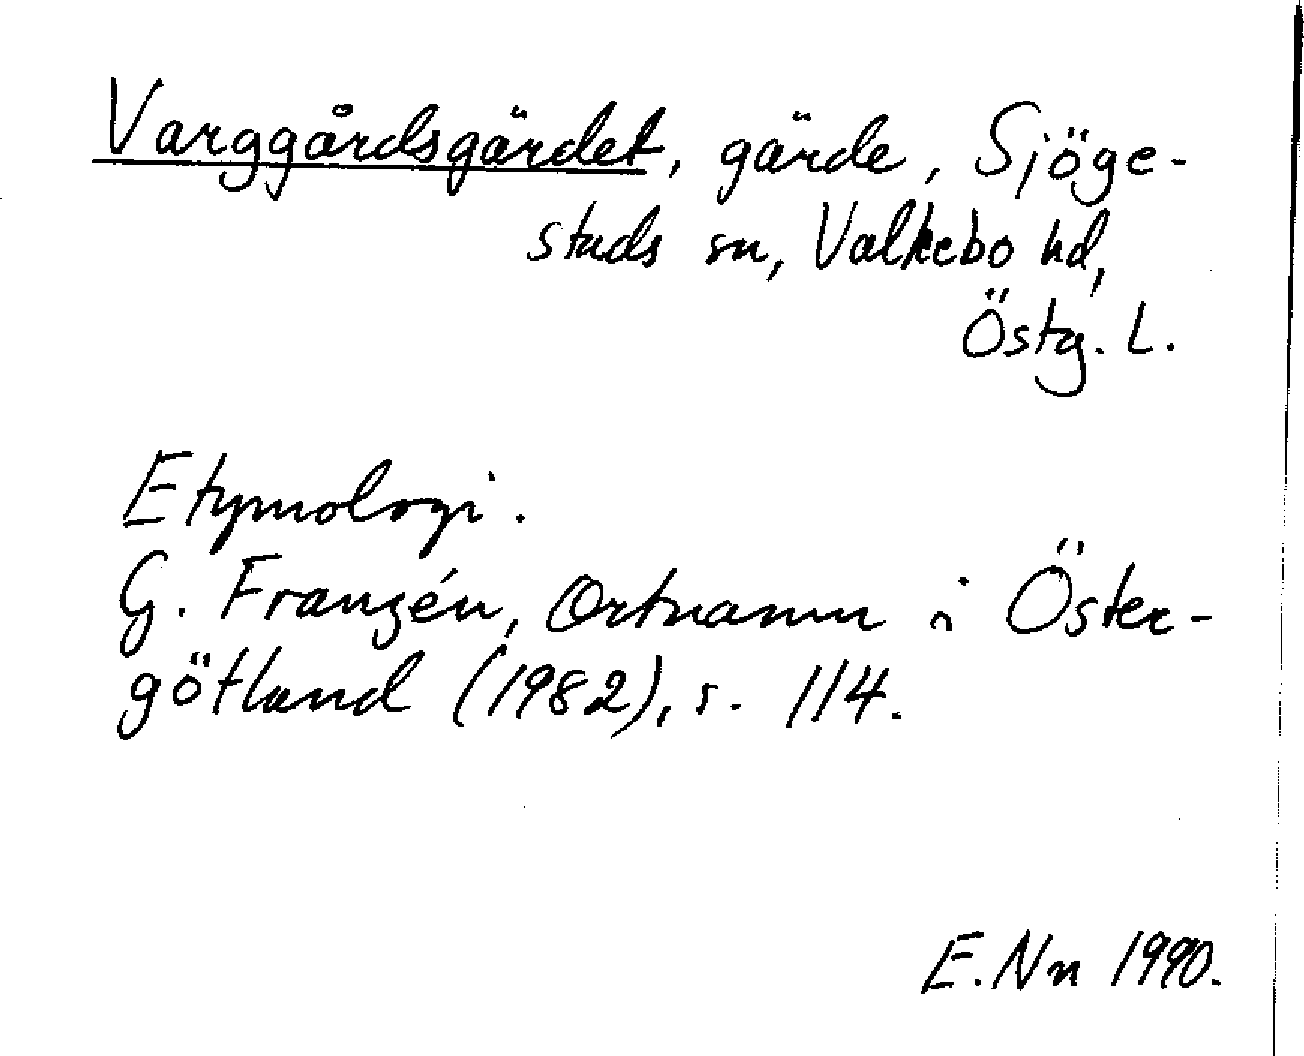 Varggårdsgärdet, gärde, Sjöge-
stads sn, Valkebo hd,
Östg. L.
Etymologi.
G. Franzén, Ortnamn i Öster-
götland (1982), s. 114.
E. Nn 1990.